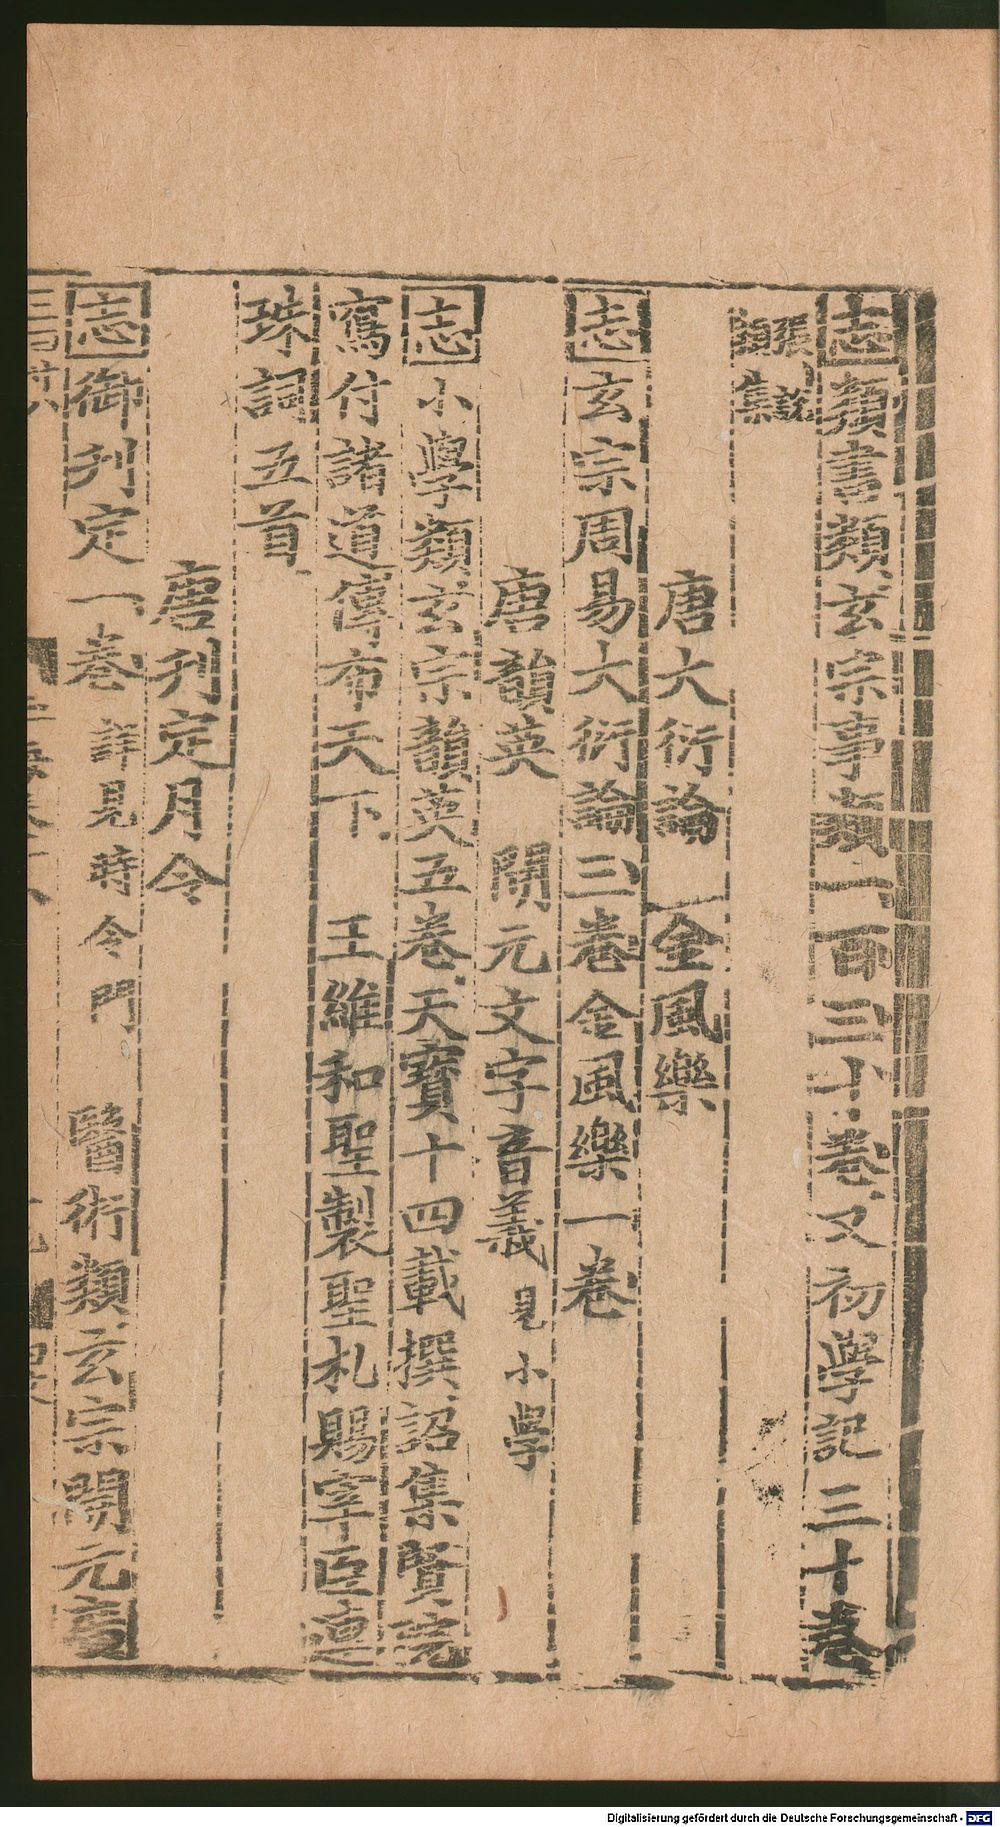 志類書類玄宗事類一百三十卷又初學記三十卷
張說
類集
唐大衍論　金風樂
志玄宗周易大衍論三卷金風樂一卷
唐韻英　開元文字音義見小學
志小學類玄宗韻英五卷天寶十四載撰詔集賢院
寫付諸道傳布天下　王維和聖製聖札賜宰臣連
珠詞五首
唐刊定月令
志御刊定一卷詳見時令門　醫術類玄宗開元廣
Digitalisierung gefördert durch die Deutsche Forschungsgemeinschaft - DFG